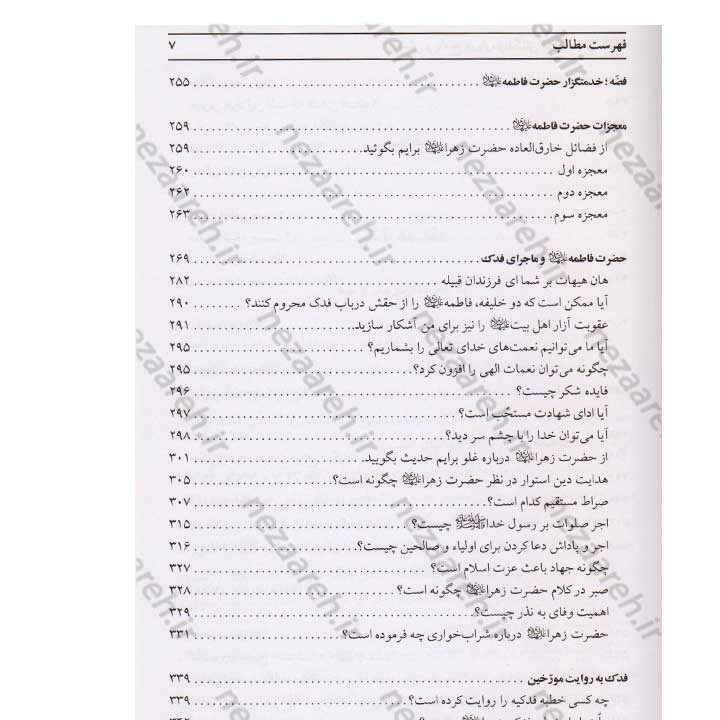 فهرست مطالب ۷
فضّه؛ خدمتگزار حضرت فاطمه ۲۵۵
معجزات حضرت فاطمه ۲۵۹
از فضائل خارق‌العاده حضرت زهرا برایم بگوئید. ۲۵۹
معجزه اول ۲۶۰
معجزه دوم ۲۶۲
معجزه سوم ۲۶۳
حضرت فاطمه و ماجرای فدک ۲۶۹
هان هیهات بر شما ای فرزندان قبیله ۲۸۲
آیا ممکن است که دو خلیفه، فاطمه را از حقش درباب فدک محروم کنند؟ ۲۹۰
عقوبت آزار اهل بیت را نیز برای من آشکار سازید. ۲۹۱
آیا ما می‌توانیم نعمت‌های خدای تعالی را بشماریم؟ ۲۹۵
چگونه می‌توان نعمات الهی را افزون کرد؟ ۲۹۵
فایده شکر چیست؟ ۲۹۶
آیا ادای شهادت مستحّب است؟ ۲۹۷
آیا می‌توان خدا را با چشم سر دید؟ ۲۹۸
از حضرت زهرا درباره غلو برایم حدیث بگویید. ۳۰۱
هدایت دین استوار در نظر حضرت زهرا چگونه است؟ ۳۰۵
صراط مستقیم کدام است؟ ۳۰۷
اجر صلوات بر رسول خدا ﷺ چیست؟ ۳۱۵
اجر و پاداش دعا کردن برای اولیاء و صالحین چیست؟ ۳۱۶
چگونه جهاد باعث عزت اسلام است؟ ۳۲۷
صبر در کلام حضرت زهرا چگونه است؟ ۳۲۸
اهمیت وفای به نذر چیست؟ ۳۲۹
حضرت زهرا درباره شراب‌خواری چه فرموده است؟ ۳۳۱
فدک به روایت مورّخین ۳۳۹
چه کسی خطبه فدکیه را روایت کرده است؟ ۳۳۹
nezaareh.ir